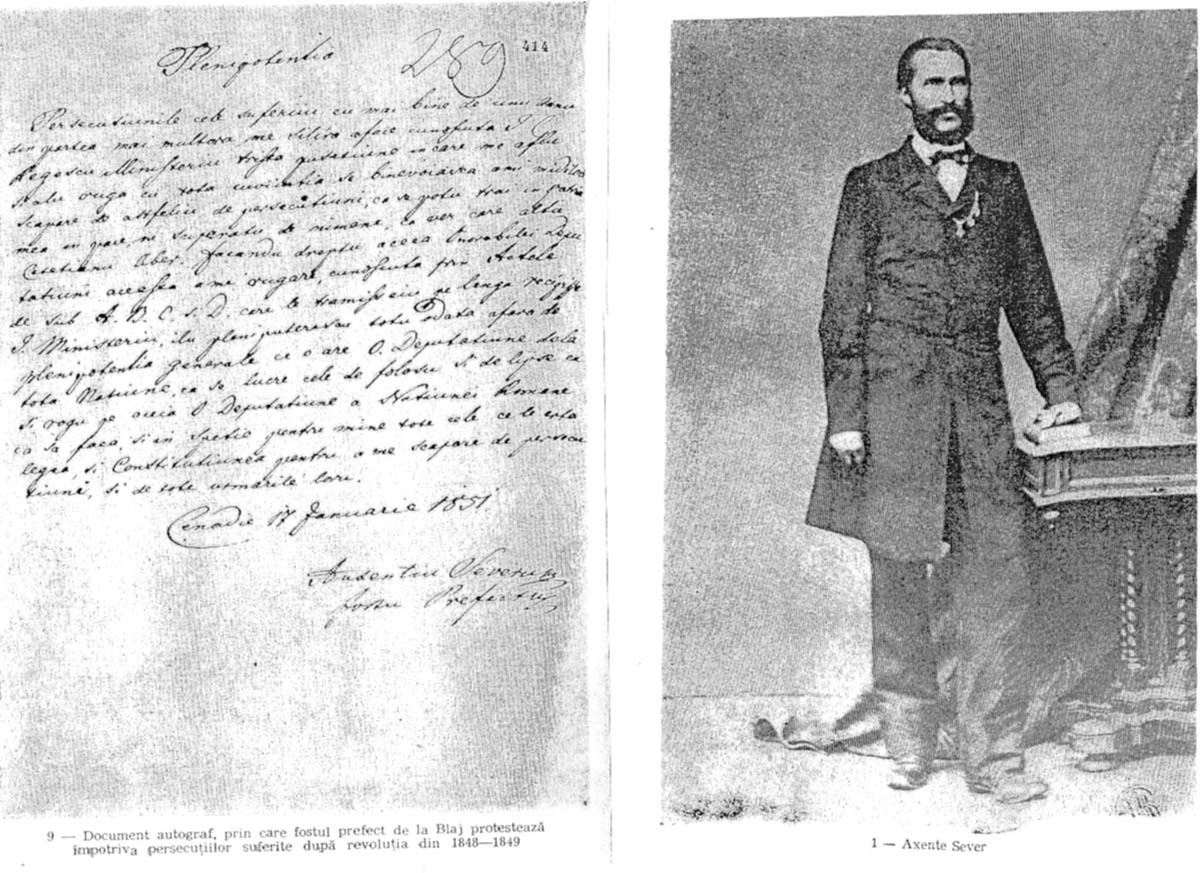 Plenipotentia
289
414
Persecutiunile cele suferiiu cu mai bine de unu anu
din partea mai multora me silira a face cunoscuta I.
Regescu Ministeriu trista pusetiune in care me aflu
rogu cu tota cuviintia se binevoiasca
scapare de astfeliu de persecutiuni, ca se potu trai in patria
mea in pace, ne superatu de nimene, ca ver care altu
Cetetianu liber. facandu dreptu aceea Onorabilei Depu
tatiuni acesta a mea rugare, cunoscuta prin Actele
de sub A. B. C. si D. care le tramisseiu pe lenga recipisse
I. Ministeriu, ilu pleniputerescu totu odata afara de
plenipotentia generale ce o are O. Deputatiune dela
tota Natiune, ca se lucre cele de folosu si de lipse ca
si rogu pe aceia O Deputatiune a Natiunei Romane
ca sa faca, si in spetie pentru mine tote cele ce le iarta
legea, si Constitutiunea pentru a me scapare de persecu
tiuni, si de tote urmarile loru.
Cenadie 17 Januarie 1851
Ausentiu Severu
fostu Prefectu
9 — Document autograf, prin care fostul prefect de la Blaj protestează
împotriva persecuțiilor suferite după revoluția din 1848—1849
1 — Axente Sever